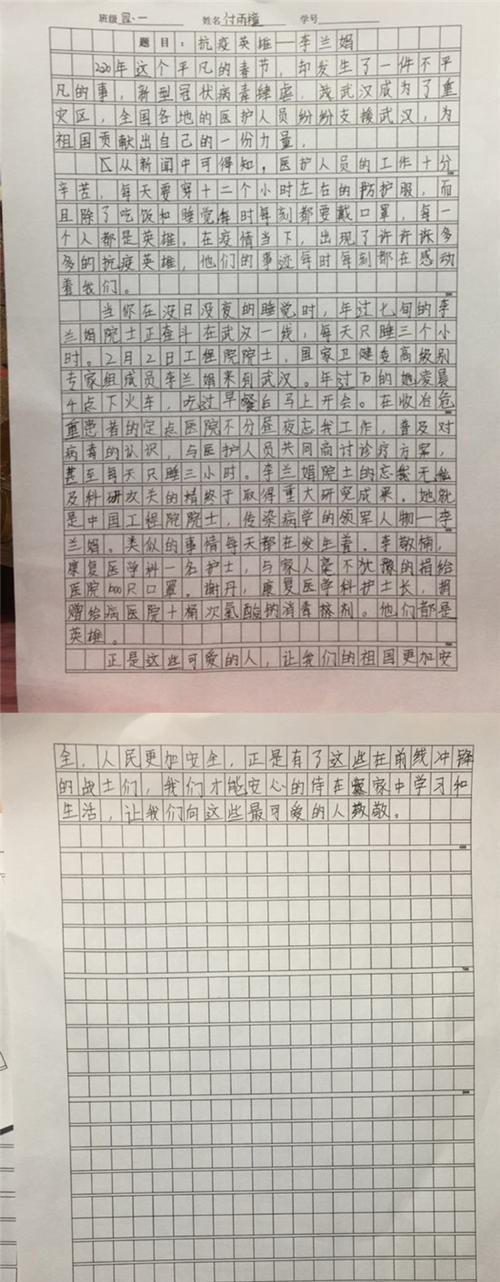 班级 四、一 姓名 付雨檀 学号
题目：抗疫英雄—李兰娟
2020年这个平凡的春节，却发生了一件不平
凡的事，新型冠状病毒肆虐，武汉成为了重
灾区，全国各地的医护人员纷纷支援武汉，为
祖国贡献出自己的一份力量。
从新闻中可得知，医护人员的工作十分
辛苦，每天要穿十二个小时左右的防护服，而
且除了吃饭和睡觉每时每刻都要戴口罩，每一
个人都是英雄。在疫情当下，出现了许许多
多的抗疫英雄，他们的事迹每时每刻都在感动
着我们。
当你在没日没夜的睡觉时，年过七旬的李
兰娟院士正奋斗在武汉一线，每天只睡三个小
时。2月2日工程院院士，国家卫健委高级别
专家组成员李兰娟来到武汉。年过70的她凌晨
4点下火车，吃过早餐后马上开会。在收治危
重患者的定点医院不分昼夜忘我工作，普及对
病毒的认识，与医护人员共同商讨诊疗方案，
甚至每天只睡三小时。李兰娟院士的忘我无私
及科研攻关的精终于取得重大研究成果。她就
是中国工程院院士，传染病学的领军人物—李
兰娟。类似的事情每天都在发生着。李敬楠，
康复医学科一名护士，与家人毫不犹豫的捐给
医院500只口罩。谢丹，康复医学科护士长，捐
赠给病医院十桶次氯酸钠消毒剂。他们都是
英雄。
正是这些可爱的人，让我们的祖国更加安
全，人民更加安全，正是有了这些在前线冲锋
的战士们，我们才能安心的待在家中学习和
生活，让我们向这些最可爱的人致敬。